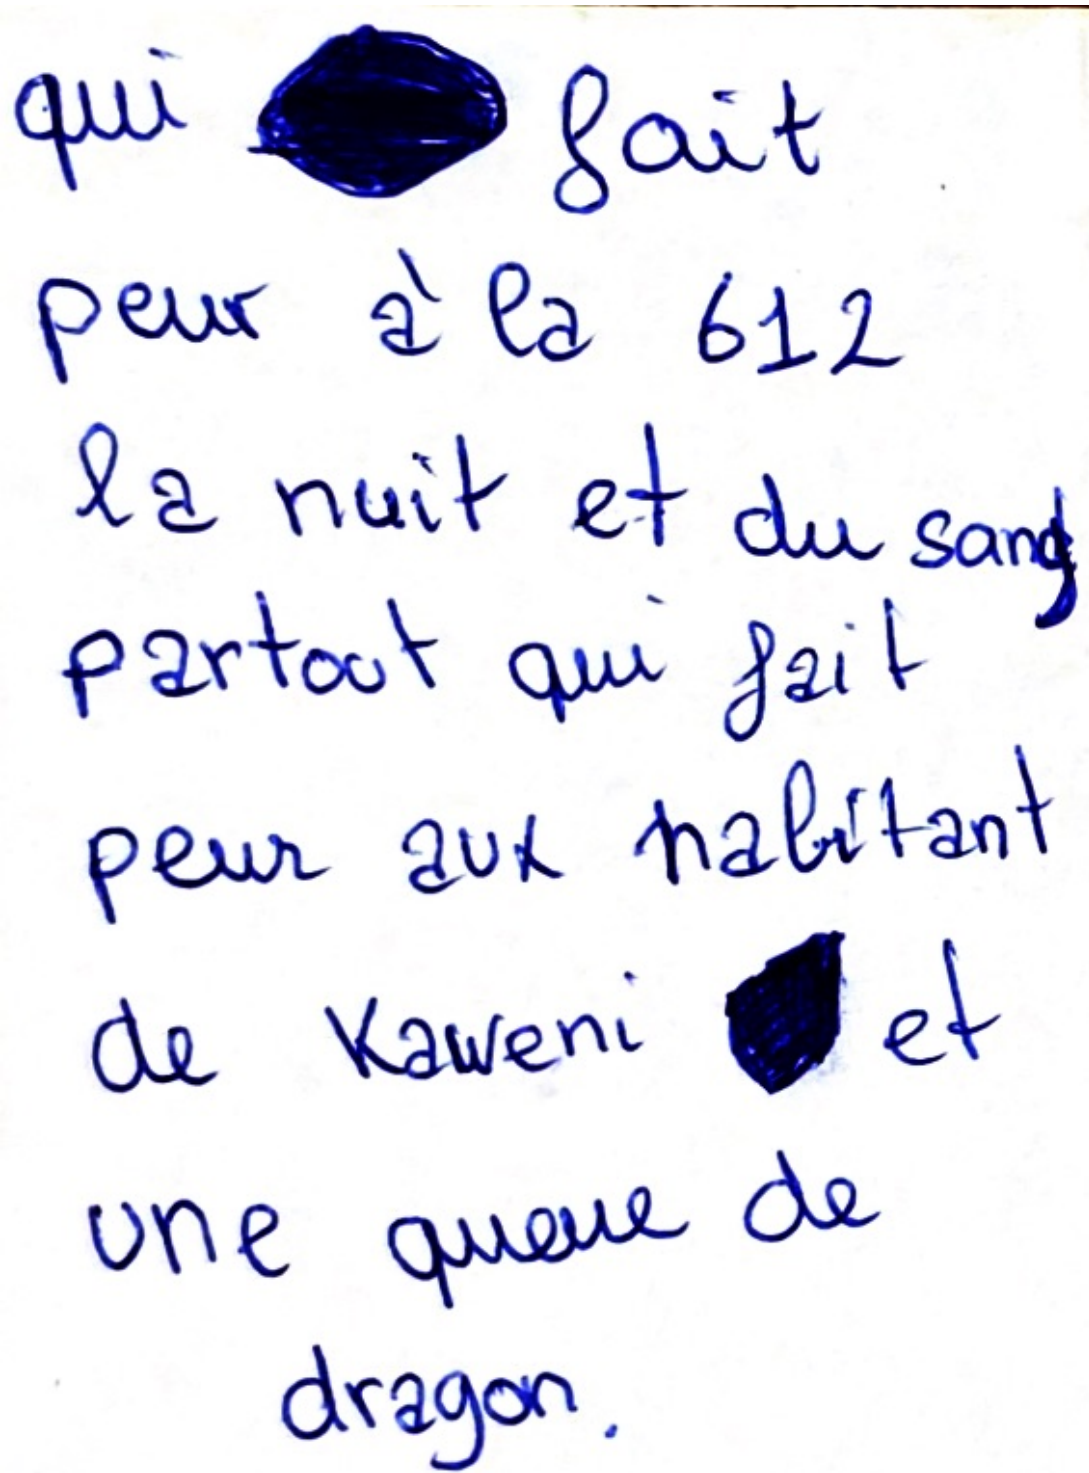 qui fait
peur à la 612
la nuit et du sang
partout qui fait
peur aux habitant
de Kaweni et
une queue de
dragon.